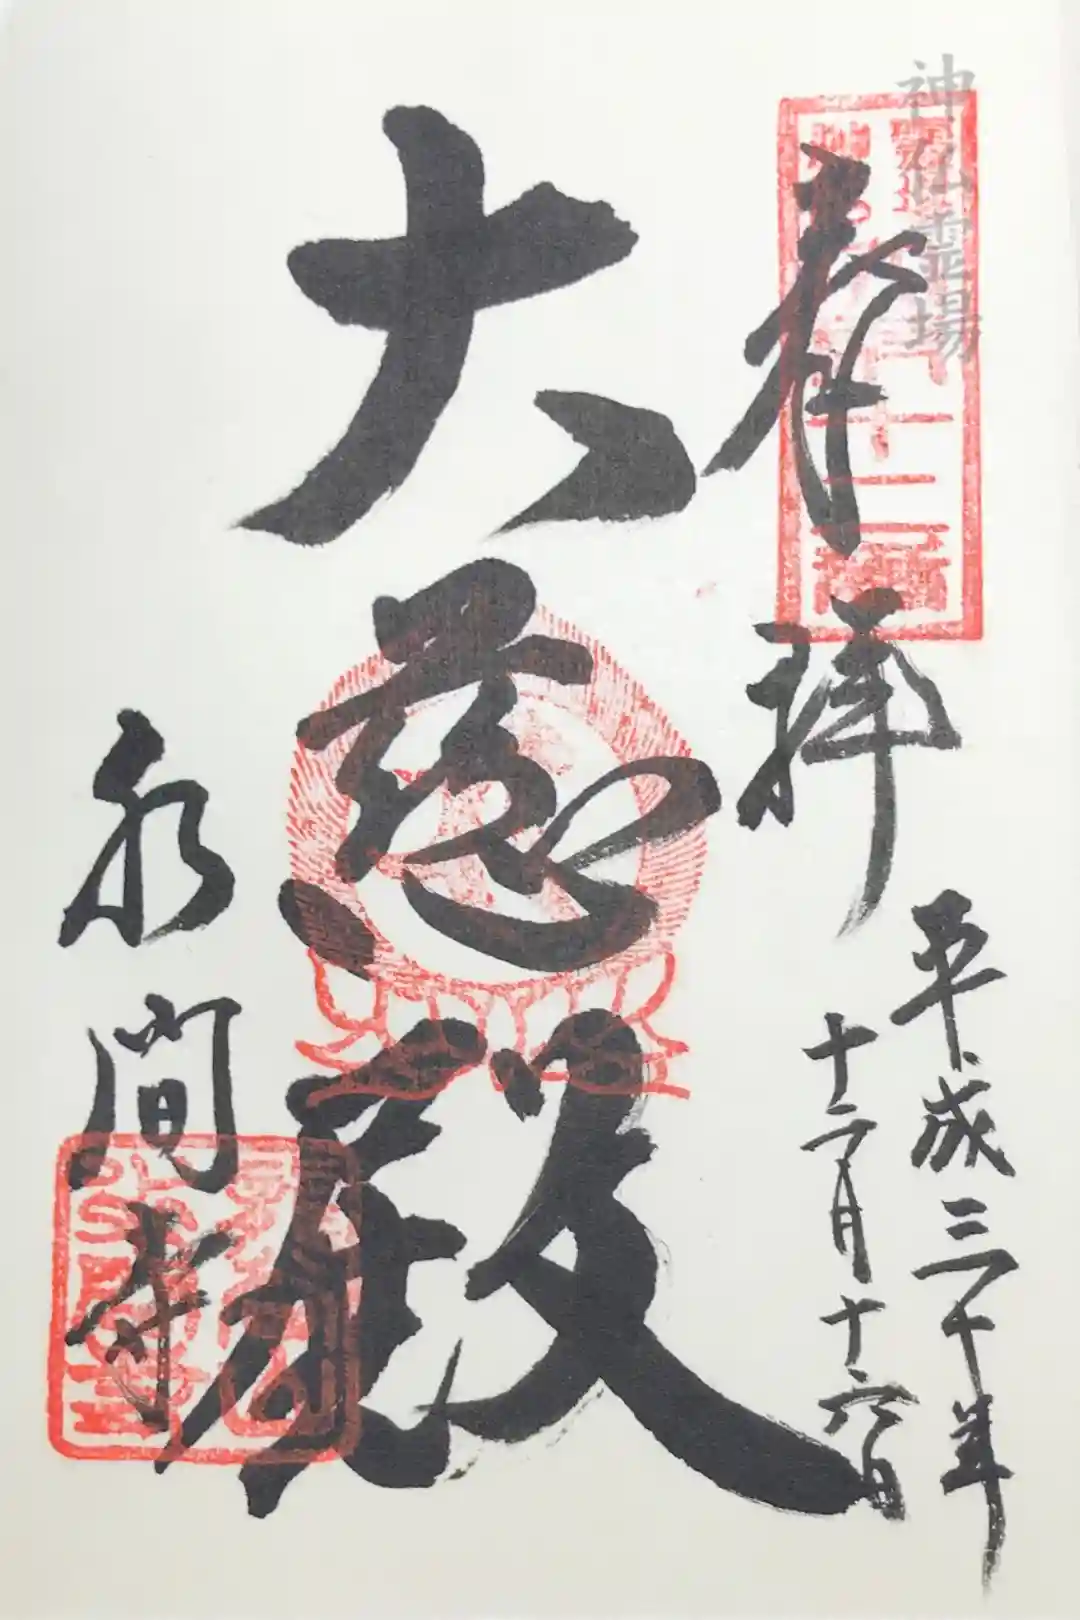 神仏霊場
奉拝
平成三十年
十二月十六日
大慈殿
水間寺